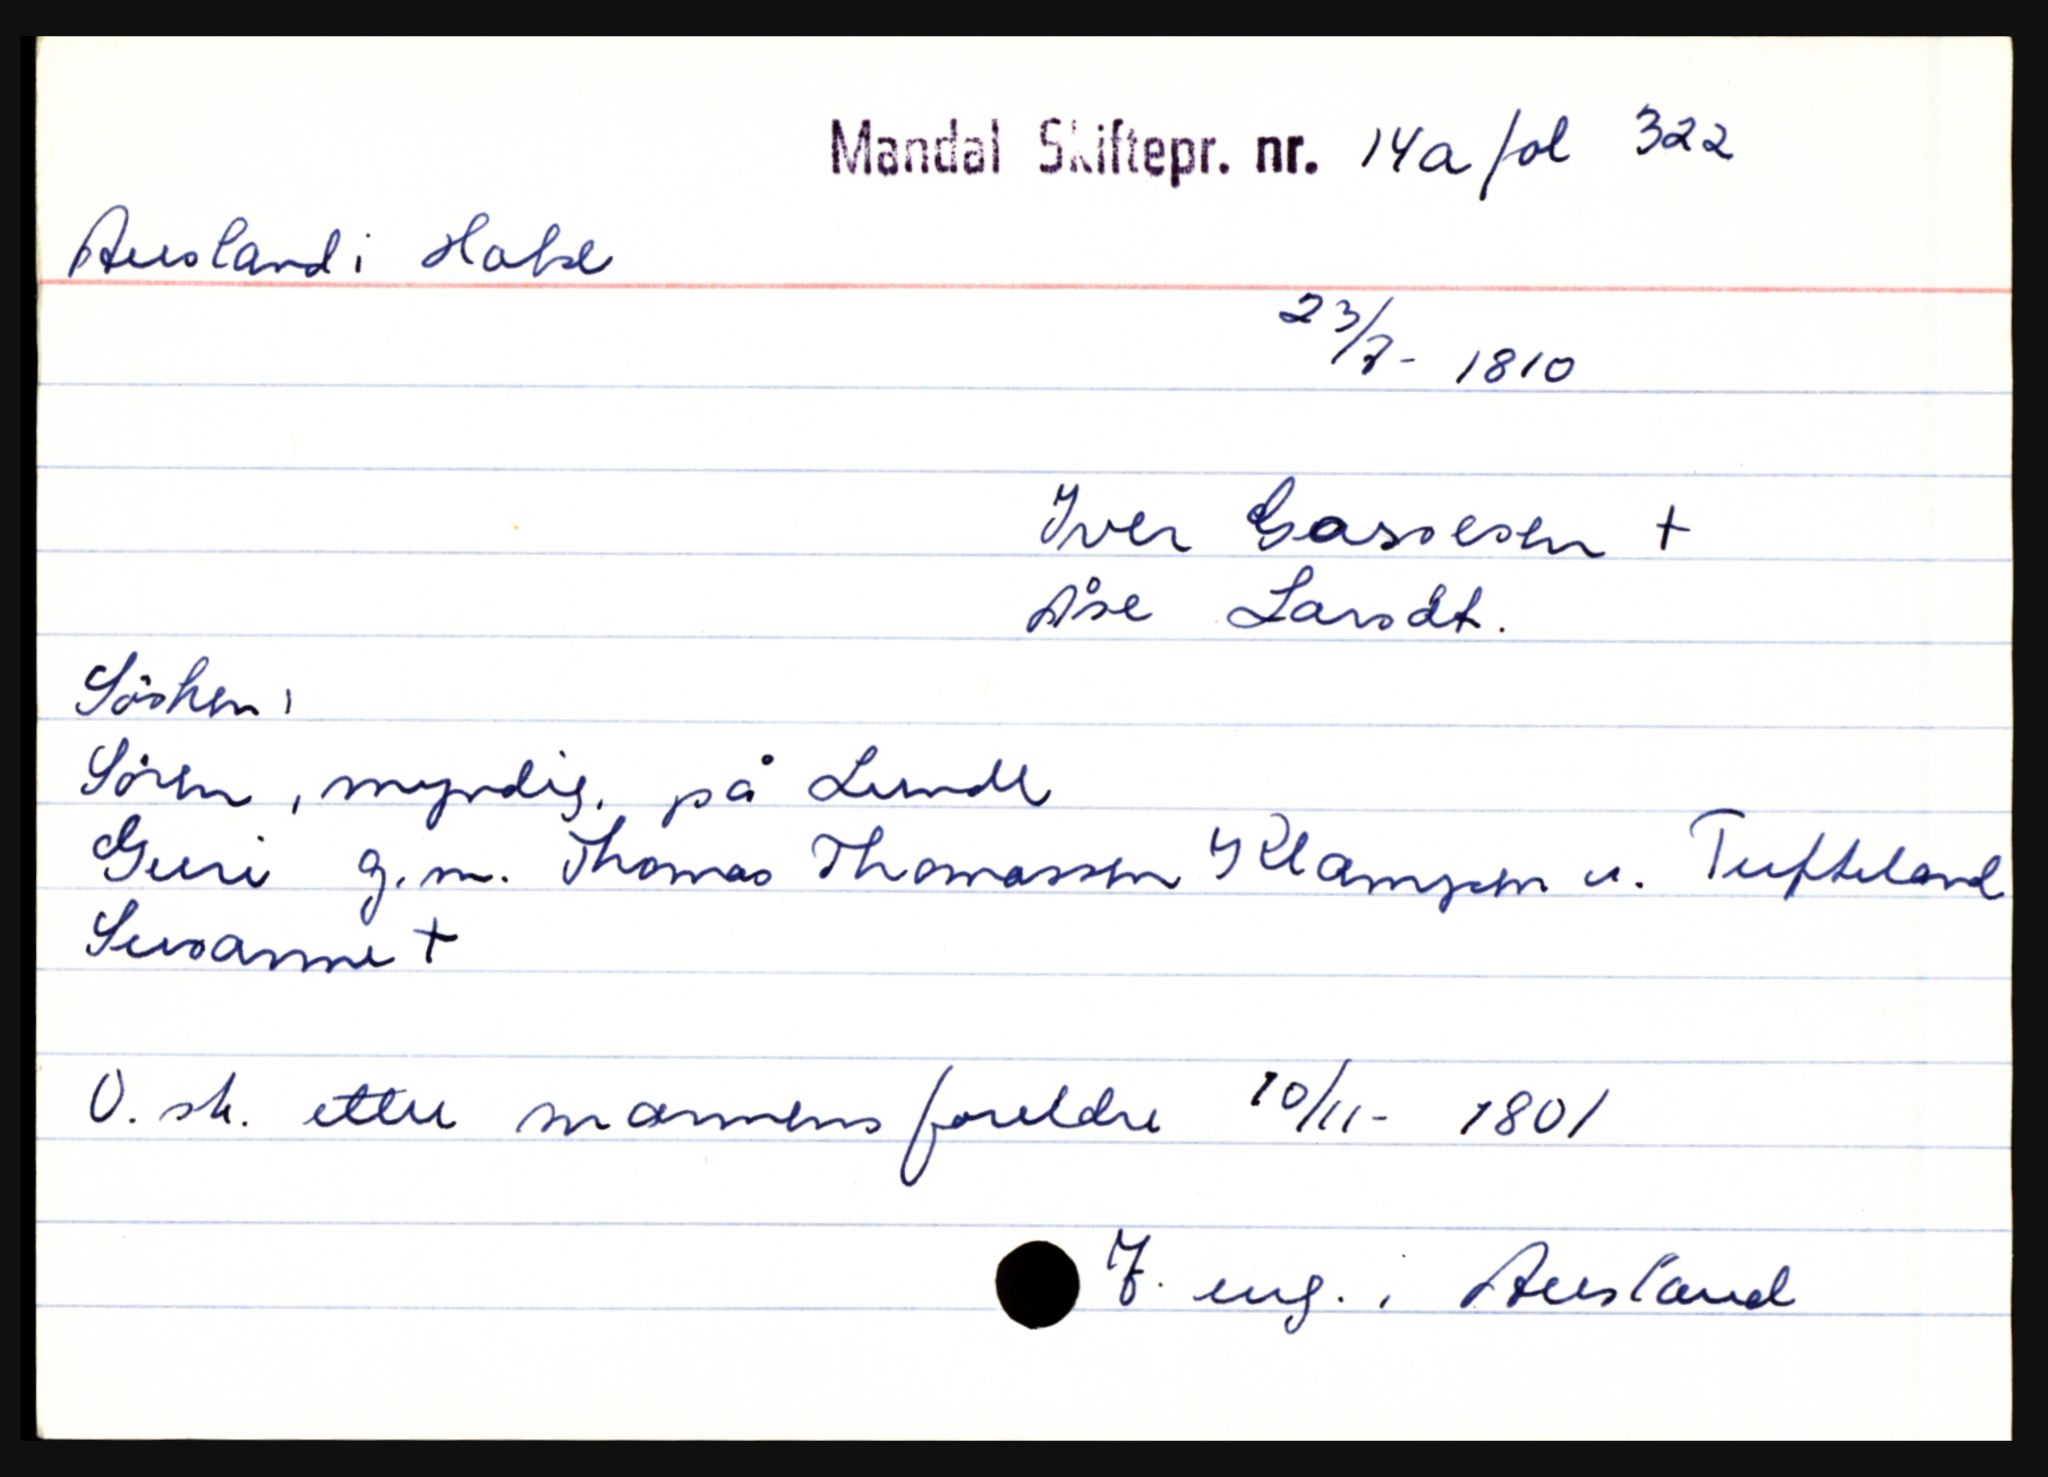 Mandal Skiftepr. nr. 14a fol 322
Ausland i Halse
23/7- 1810
Iver Gassesen +
Åse Larsdt.
Søsken:
Søren, myndig, på Lunde
Guri g.m. Thomas Thomassen Klampen u. Tufteland
Susanne +
O. sk. etter mannens foreldre 10/11- 1801
J. eng. i Ausland